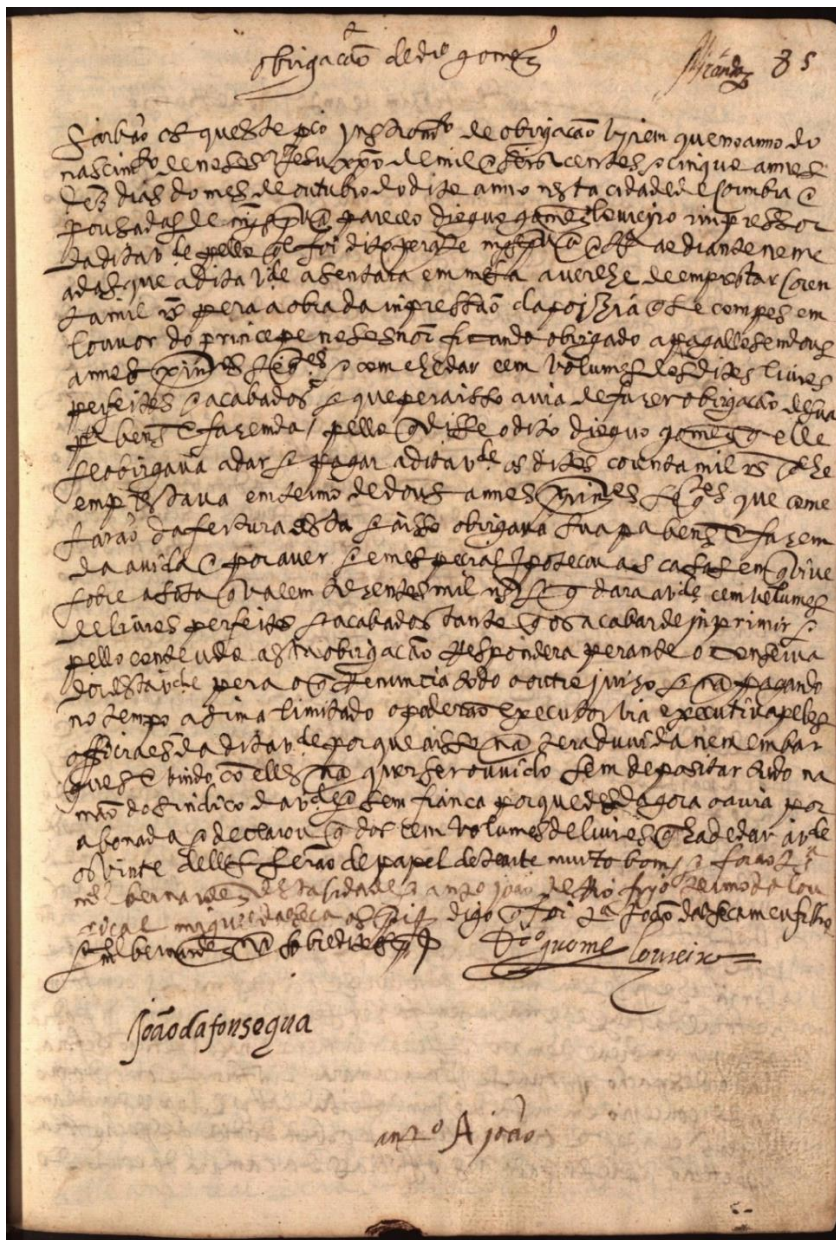 obrigacão de dio gomez
Miranda 85
Saibão os que este pco Instromto de obrigacão virem que no anno do
nascimto de noso sor Jesu xpõ de mil e seis centos e cinque annos
dez dias do mes de outubro do dito anno nesta cidade de Coimbra e
pousadas de mĩ spvã pareceo dieguo gomez loureiro impressor
da dita vde e pello ql foi dito perante mĩ spvã ts ao diante nome
adas que a dita vde asentara em mesa aver lhe de emprestar coren
ta mil rs pera a obra da inpressão da poizia q se compos em
louvor do principe noso snor ficando obrigado a pagallos em dous
annos prims segtes e com lhe dar cem volumes dos ditos livros
perfeitos e acabados e que pera isso avia de fazer obrigacão de sua
pa bens e fazenda / pello q disse o dito dieguo gomez q elle
se obrigava a dar e pagar a dita vde os ditos corenta mil rs q lhe
emprestava em termo de dous annos prims segtes que come
sarão da fectura desta e a isso obrigava sua pa bens e fazen
da avida e por aver e em especial Ipotecou as casas em q vive
sobre a dita q valem duzentos mil rs e q dara a vde cem volumes
de livros perfeitos e acabados tanto q os acabar de inprimir e
pello conteudo nesta obrigacão Respondera perante o conserva
dor desta vde pera o q Renuncia todo o outro juizo e nã pagando
no tempo asima limitado o poderão executar via executiva pelos
officiaes da dita vde porque a isso nã tera duvida nem embar
guos e vindo cõ elles nã quer ser ouvido sem depositar tudo na
mão do sindico da vde e sem fianca porque desde agora o avia por
abonado e declarou q dos cem volumes de livros q ha de dar a vde
os vinte delles serão de papel de muito bom e forão ts
mel bernardez desta cidade e anto joão de Rio frijo termo da lou
digo q foi ta João dafonseca meu filho
e mel bernardez sobredito
Dio guomez loureiro
João dafonsequa
anto A joão